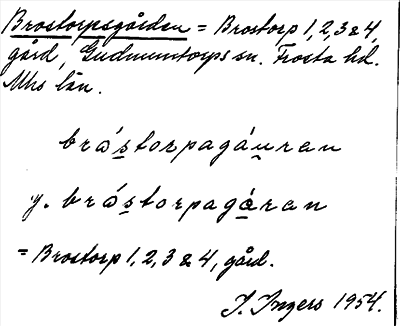 Brostorpsgården = Brostorp 1, 2, 3 & 4,
gård, Gudmuntorps sn. Frosta hd.
Mhs län.
brǻstorpagáuran
y. brǻstorpagáran
= Brostorp 1, 2, 3 & 4, gård.
I. Ingers 1954.